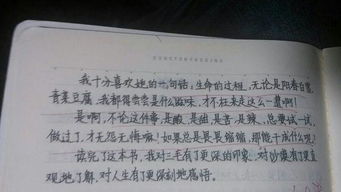 我十分喜欢她的一句话：生命的过程，无论是阳春白雪，
青菜豆腐，我都得尝尝是什么滋味，才不枉来走这么一遭啊！
是啊，不论这件事，是酸、是甜、是苦、是辣、总要试一试，
做过了，才无怨无悔嘛！如果总是畏畏缩缩，那能干成什么呢！
读完了这本书，我对三毛有了更深的印象，对沙漠有了更直
观地了解，对人生有了更深刻地感悟。